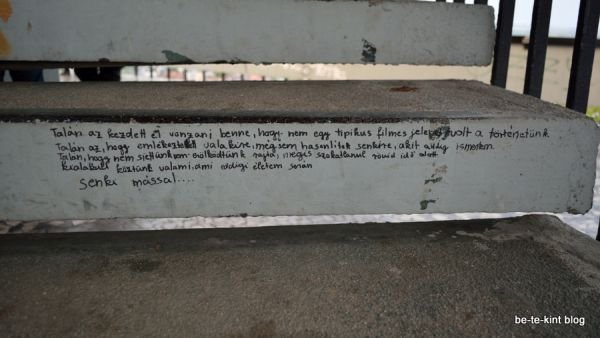 Talán az kezdett el vonzani benne, hogy nem egy tipikus filmes jelenet volt a történetünk
Talán az, hogy emlékeztetett valakire, mégsem hasonlított senkire, akit addig ismertem.
Talán, hogy nem siettünk, nem erőlködtünk rajta, mégis szokatlanul rövid idő alatt
kialakult köztünk valami, ami eddigi életem során
senki mással....
be-te-kint blog